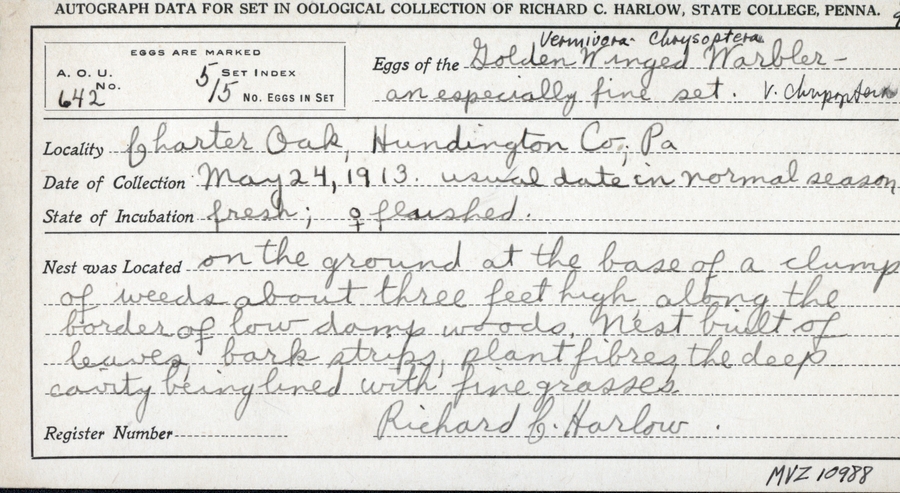 AUTOGRAPH DATA FOR SET IN OOLOGICAL COLLECTION OF RICHARD C. HARLOW, STATE COLLEGE, PENNA.
EGGS ARE MARKED
A. O. U. No. 642
5/5 SET INDEX
No. EGGS IN SET
Vermivora Chrysoptera
Eggs of the Golden Winged Warbler -
an especially fine set. V. chrysoptera
Locality Charter Oak, Hundington Co, Pa
Date of Collection May 24, 1913. usual date in normal season
State of Incubation fresh; ♀ flushed.
Nest was Located on the ground at the base of a clump
of weeds about three feet high along the
border of low damp woods. Nest built of
leaves, bark strips, plant fibres, the deep
cavity being lined with fine grasses
Richard C. Harlow.
Register Number
MVZ 10988